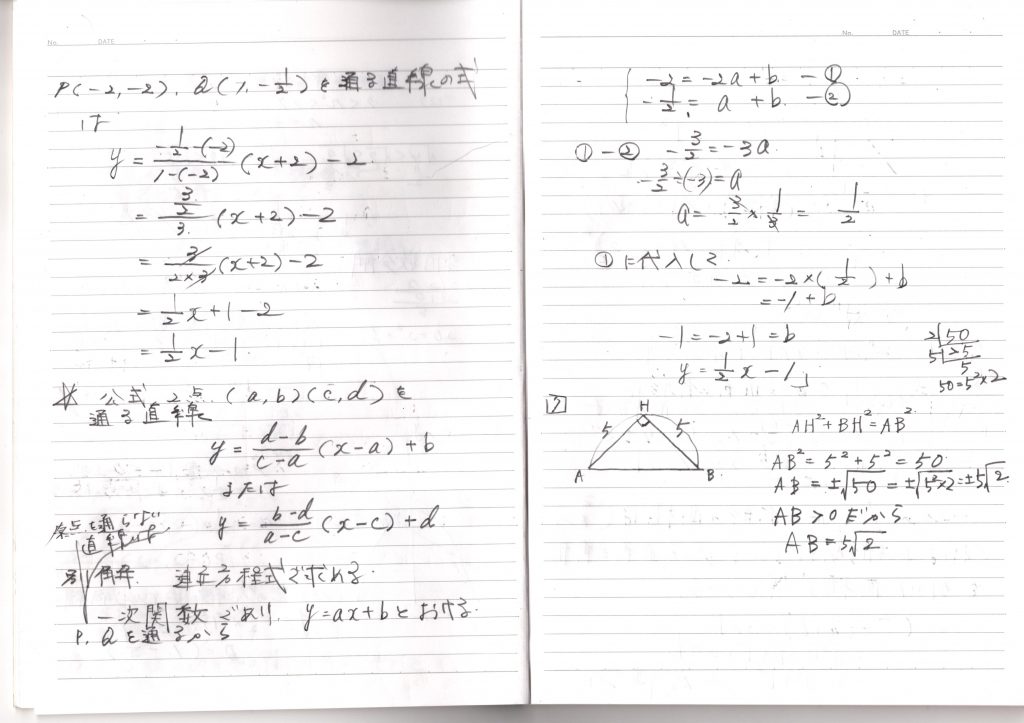 No. DATE
P(-2,-2), Q(1,-1/2)を通る直線の式
は
y = (-1/2-(-2))/(1-(-2)) (x+2) - 2
= (3/2)/3 (x+2) - 2
= 3/(2×3) (x+2) - 2
= 1/2 x + 1 - 2
= 1/2 x - 1
☆ 公式 2点 (a,b)(c,d)を
通る直線
y = (d-b)/(c-a) (x-a) + b
または
y = (b-d)/(a-c) (x-c) + d
原点を通らない
直線は
別解 連立方程式で求める
一次関数であり、y=ax+bとおける.
P, Qを通るから
No. DATE
-2 = -2a + b. -①
-1/2 = a + b. -②
① - ② -3/2 = -3a
-3/2 ÷ (-3) = a
a = 3/2 × 1/3 = 1/2
①に代入して
-2 = -2×(1/2) + b
= -1 + b
-1 = -2+1 = b
y = 1/2 x - 1」
2)50
5)25
5
50=5²×2
7
H
5 5
A B
AH²+BH²=AB²
AB² = 5²+5² = 50
AB = ±√50 = ±√(5²×2) = ±5√2
AB > 0 だから
AB = 5√2